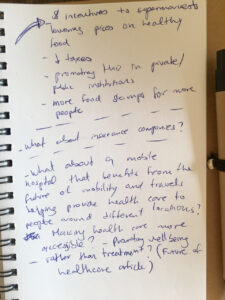 $ incentives to supermarkets
lowering prices on healthy
food
- ↓ taxes
- promoting this in private/
public institutions
- more food stamps for more
people
- What about insurance companies?
- What about a mobile
hospital that benefits from the
future of mobility and travels
helping provide health care to
people around different locations?
Making health care more
accessible? - Promoting wellbeing
rather than treatment? (Future of
healthcare article)